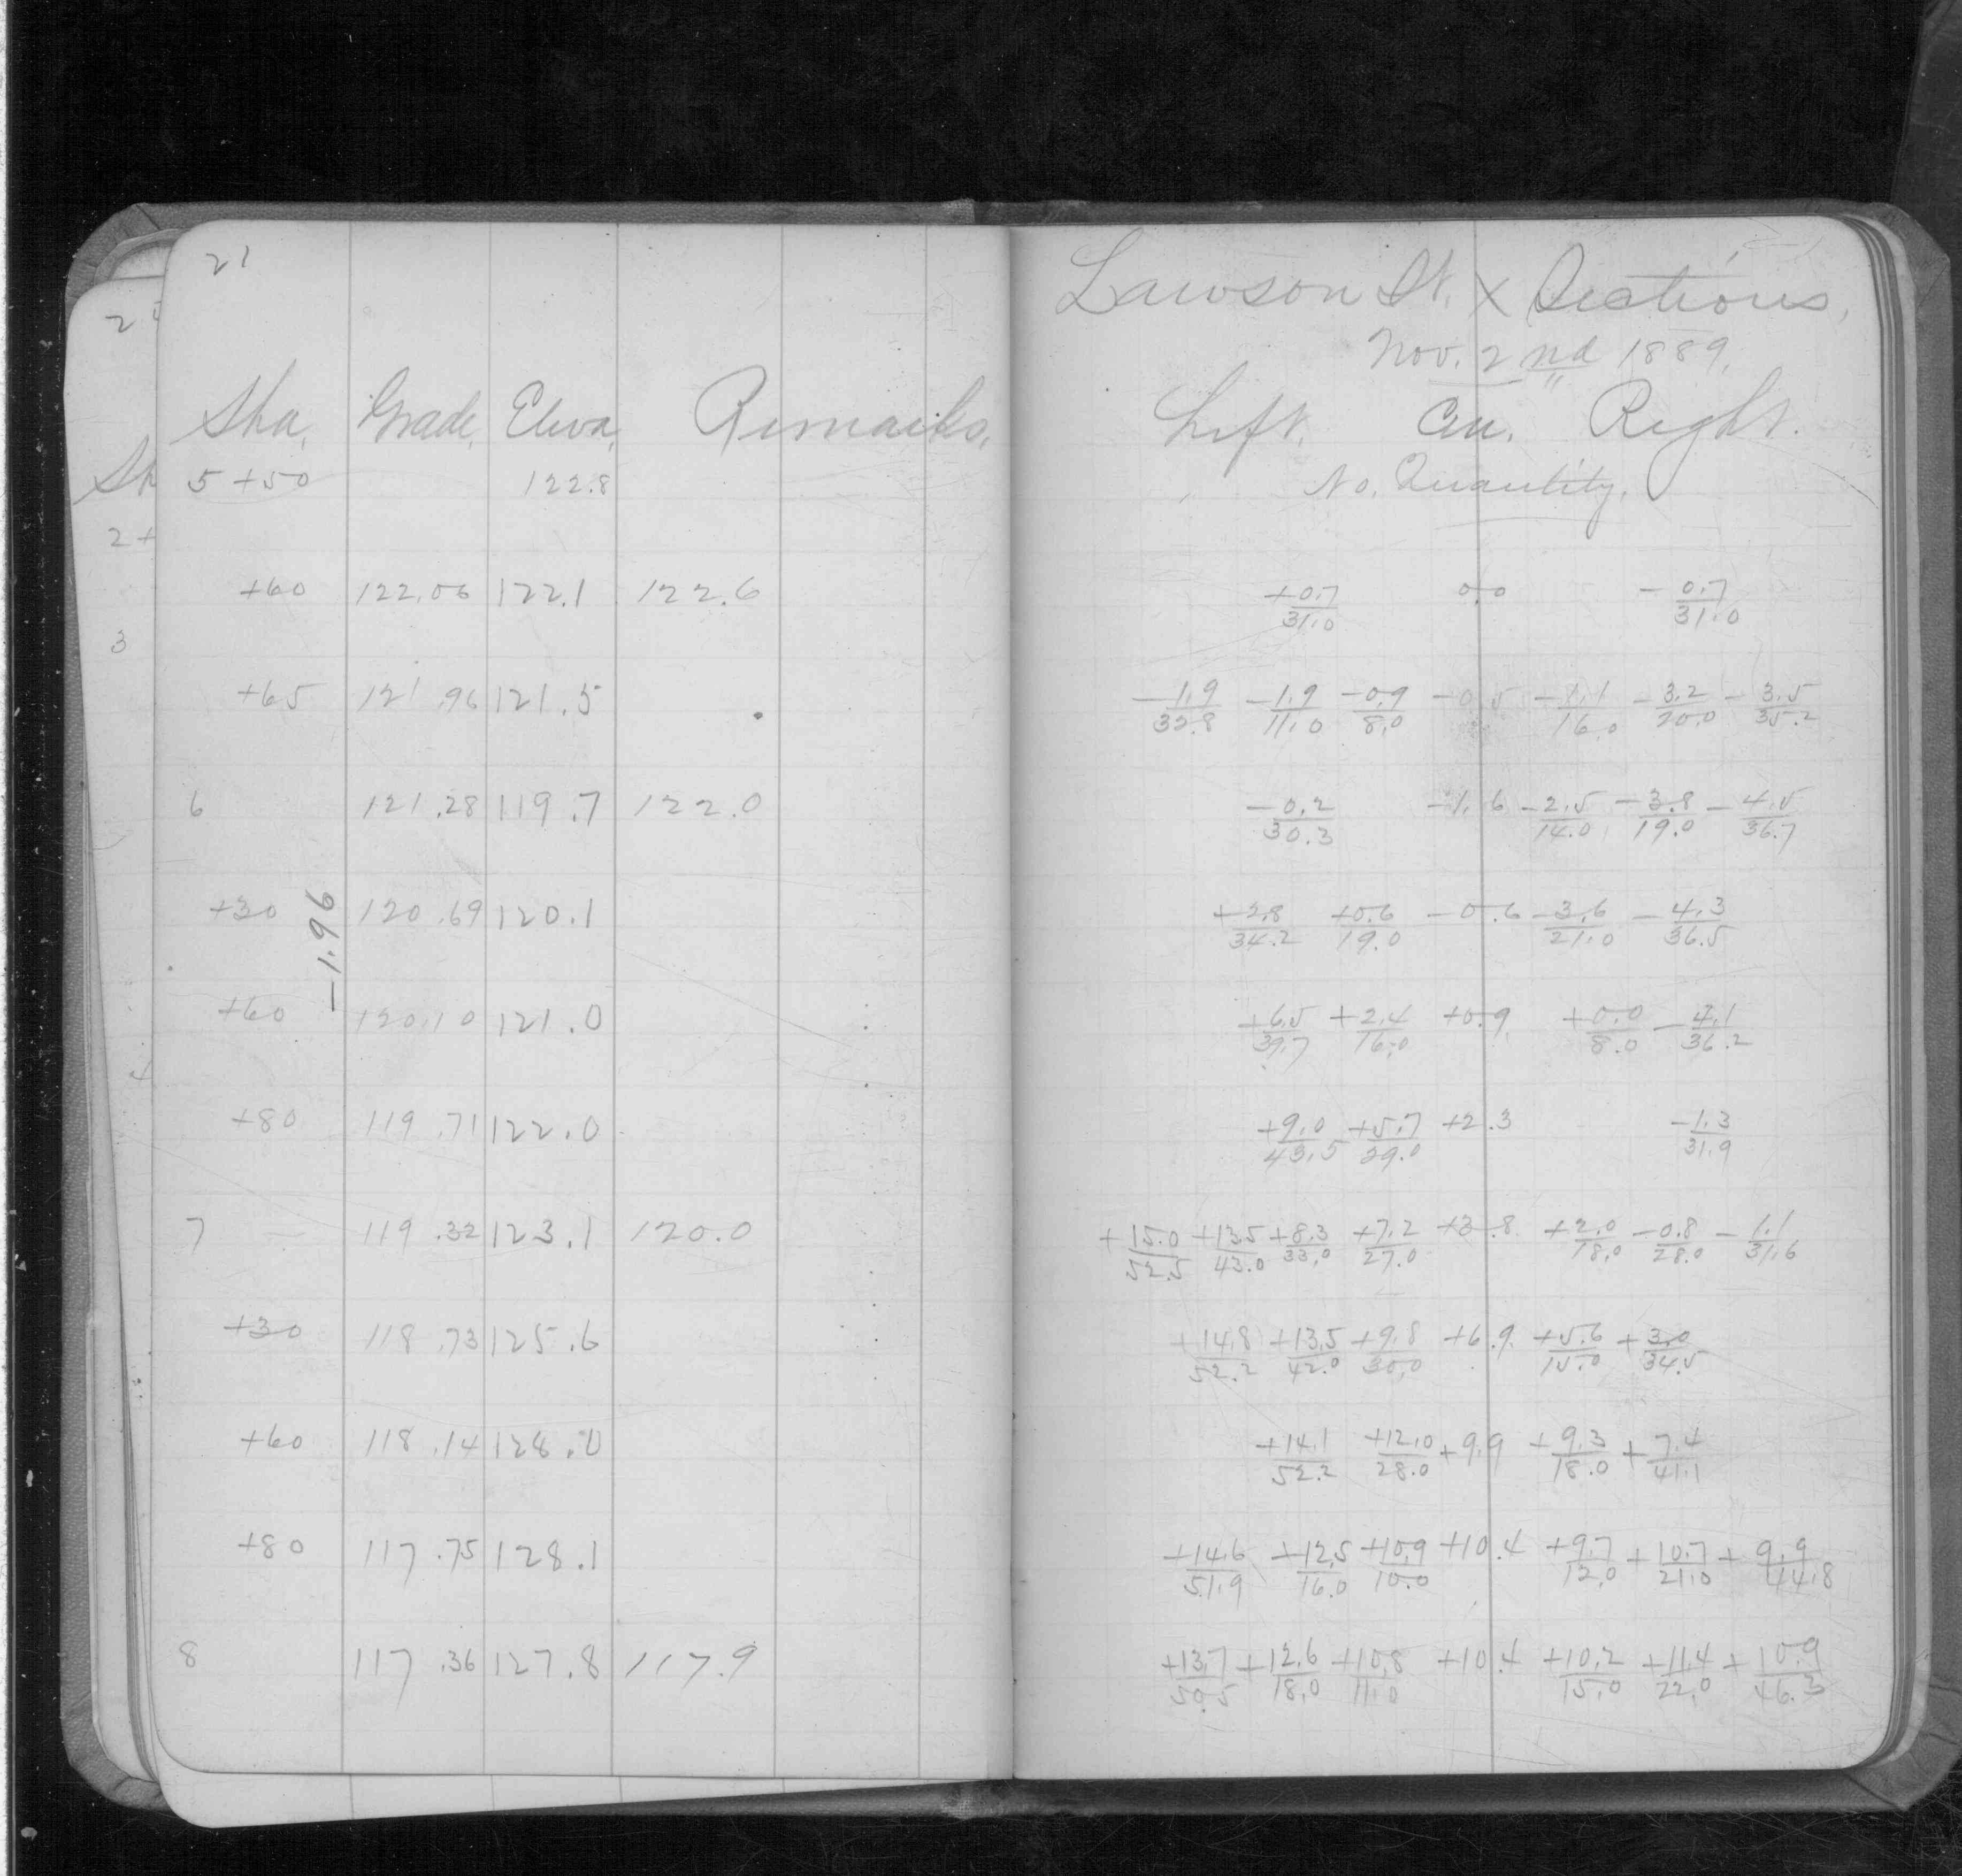 21
Sta. Grade, Eleva, Remarks,
5 +50 122.8
+60 122.06 122.1 122.6
+65 121.96 121.5
6 121.28 119.7 122.0
+30 120.69 120.1
-1.96
+60 120.10 121.0
+80 119.71 122.0
7 119.32 123.1 120.0
+30 118.73 125.6
+60 118.14 128.0
+80 117.75 128.1
8 117.36 127.8 117.9
2
St
2+
3
4
Lawson St. X Sections,
Nov. 2nd 1889.
Left. Cen. Right.
No. Quantity.
+0.7 0.0 -0.7
31.0 31.0
-1.9 -1.9 -0.9 -0.5 -1.1 -3.2 -3.5
32.8 11.0 8.0 16.0 20.0 35.2
-0.2 -1.6 -2.5 -3.8 -4.5
30.3 14.0 19.0 36.7
+2.8 +0.6 -0.6 -3.6 -4.3
34.2 19.0 21.0 36.5
+6.5 +2.4 +0.9 +0.0 -4.1
39.7 16.0 8.0 36.2
+9.0 +5.7 +2.3 -1.3
43.5 29.0 31.9
+15.0 +13.5 +8.3 +7.2 +3.8 +2.0 -0.8 -1.1
52.5 43.0 33.0 27.0 18.0 28.0 31.6
+14.8 +13.5 +9.8 +6.9 +5.6 +3.0
52.2 42.0 30.0 15.0 34.5
+14.1 +12.0 +9.9 +9.3 +7.4
52.2 28.0 18.0 41.1
+14.6 +12.5 +10.9 +10.4 +9.7 +10.7 +9.9
51.9 16.0 10.0 12.0 21.0 44.8
+13.7 +12.6 +10.8 +10.4 +10.2 +11.4 +10.9
50.5 18.0 11.0 15.0 22.0 46.3